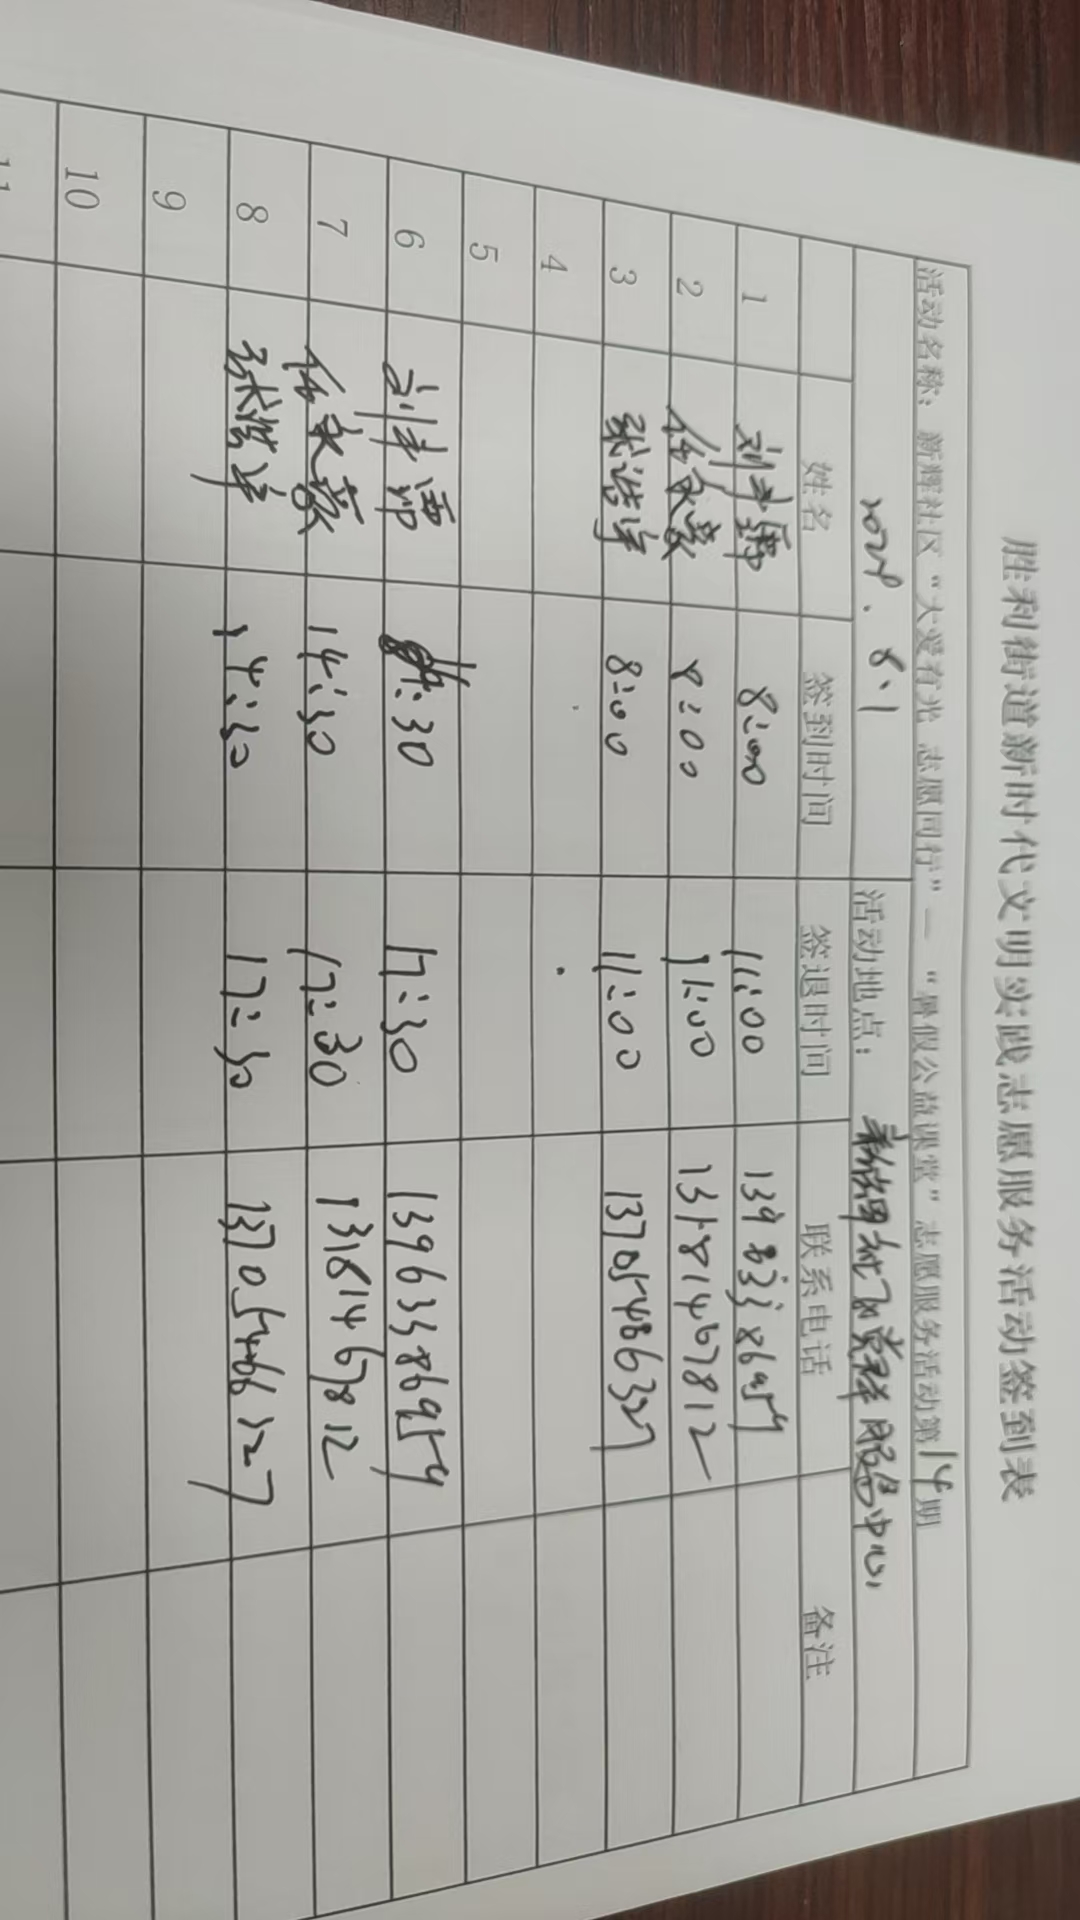 胜利街道新时代文明实践志愿服务活动签到表
活动名称：新辉社区“大爱有光 志愿同行”—“暑假公益课堂”志愿服务活动第14期
2024.8.1 活动地点： 党群服务中心
姓名 签到时间 签退时间 联系电话 备注
1 刘 8:00 11:00
2 8:00 11:00 13181467812
3 张浩宇 8:00 11:00 13705486327
4
5
6 刘 :30 17:30 13963386959
7 14:30 17:30 13181467812
8 张浩宇 14:30 17:30 13705466327
9
10
11